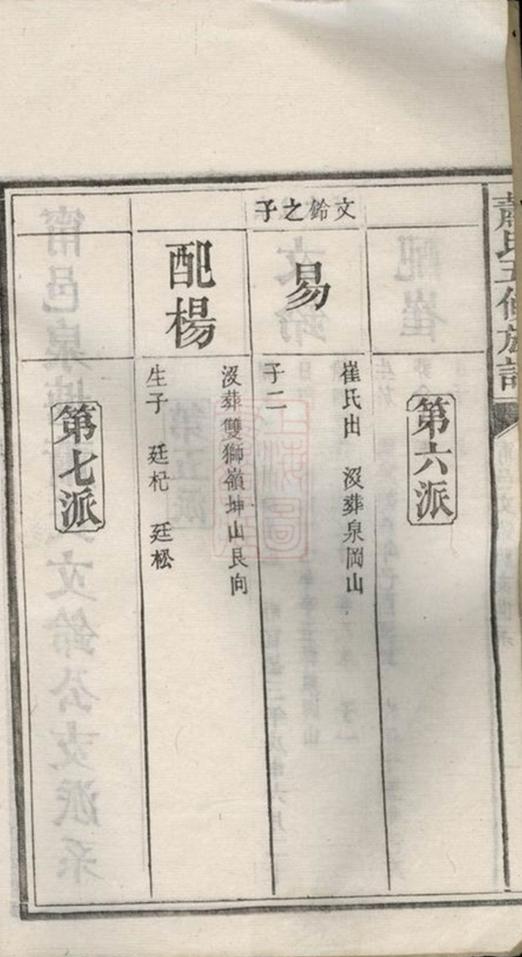 蕭氏五修族譜
第六派
文鈴之子
易
崔氏出　沒葬泉岡山
子二
配楊
沒葬雙獅嶺坤山艮向
生子　廷杞　廷松
第七派